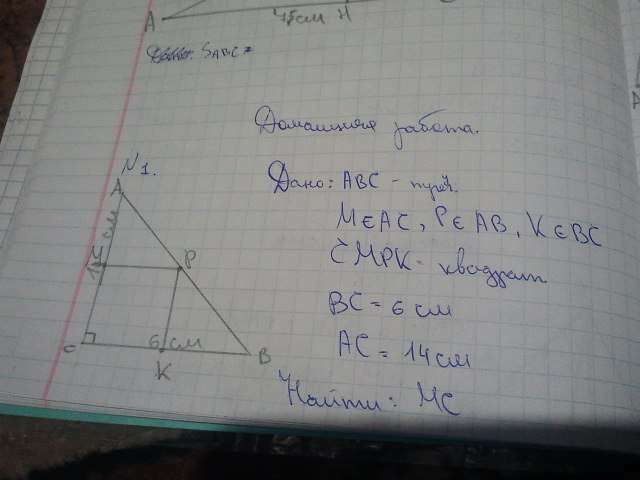 A 45см H
SABC =
Домашняя работа.
N1.
Дано: ABC -
M∈AC, P∈AB, K∈BC
CMPK - квадрат
BC = 6 см
AC = 14 см
Найти: MC
A
14 см
P
C 6 см B
K